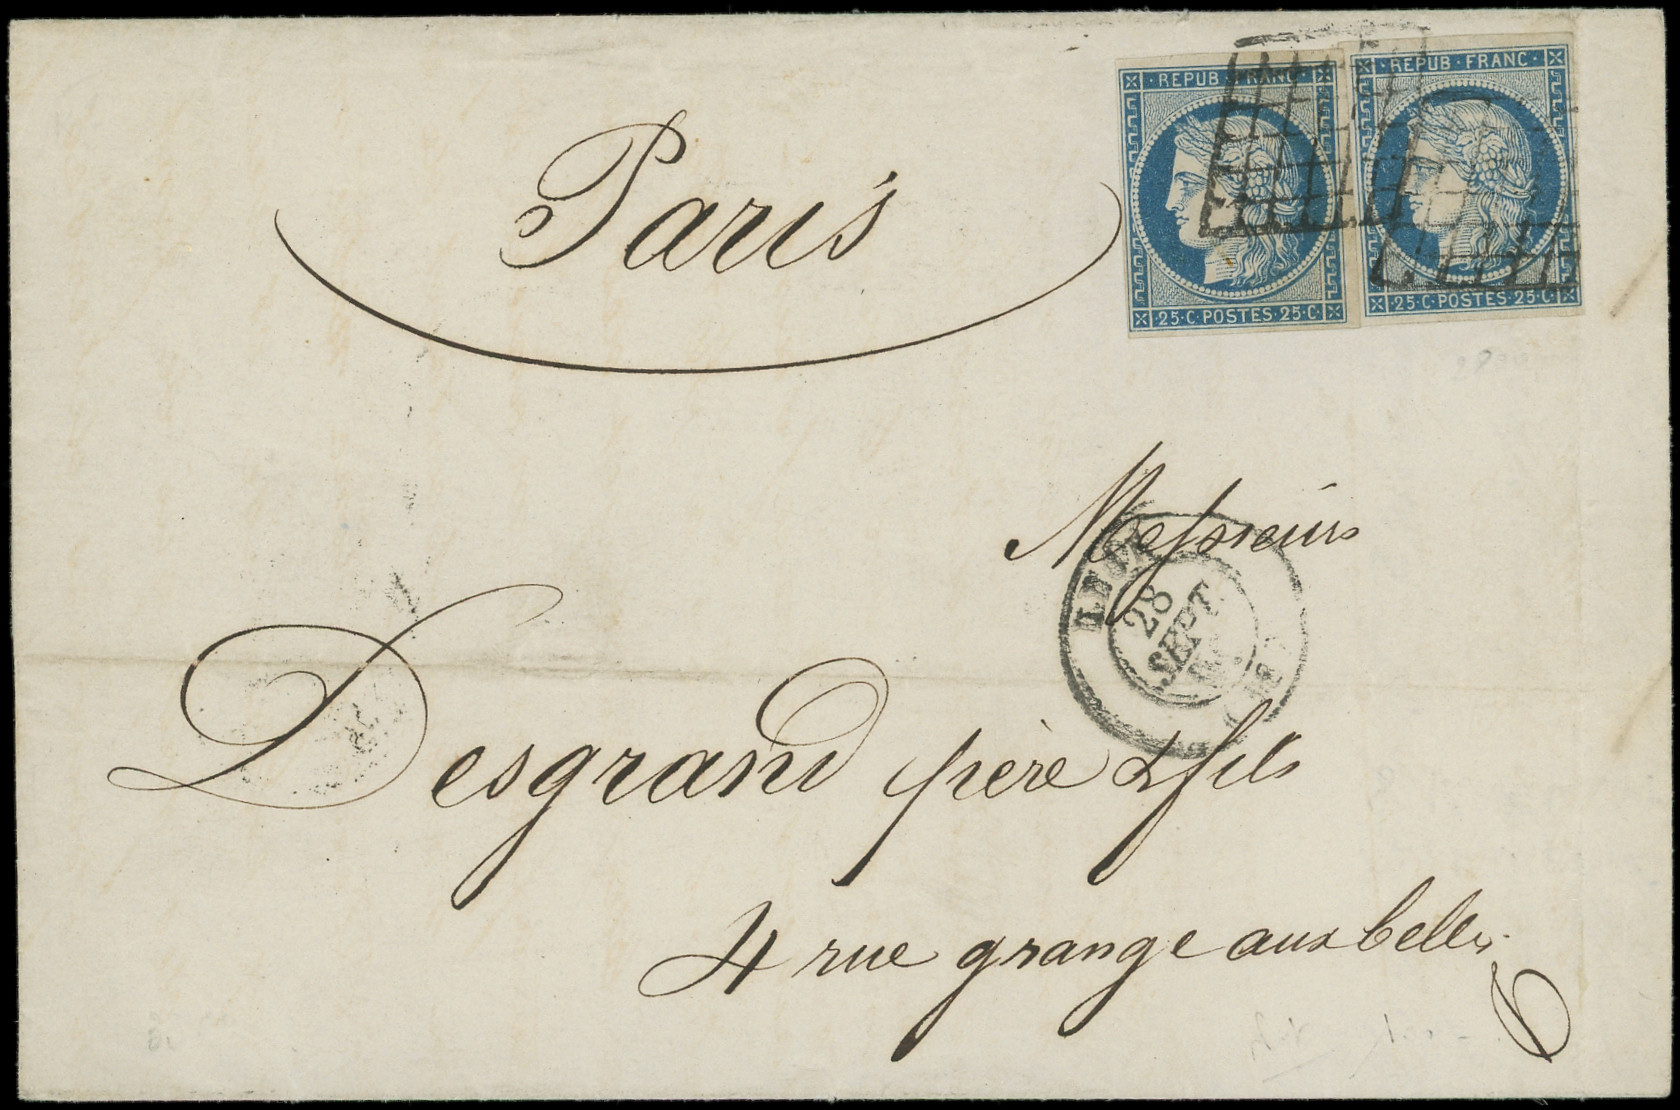 REPUB · FRANC ·
· REPUB · FRANC ·
Paris
25 · C · POSTES · 25 · C ·
25 · C · POSTES · 25 · C ·
Messieurs
28
SEPT.
Desgrand père & fils
4 rue grange aux belles